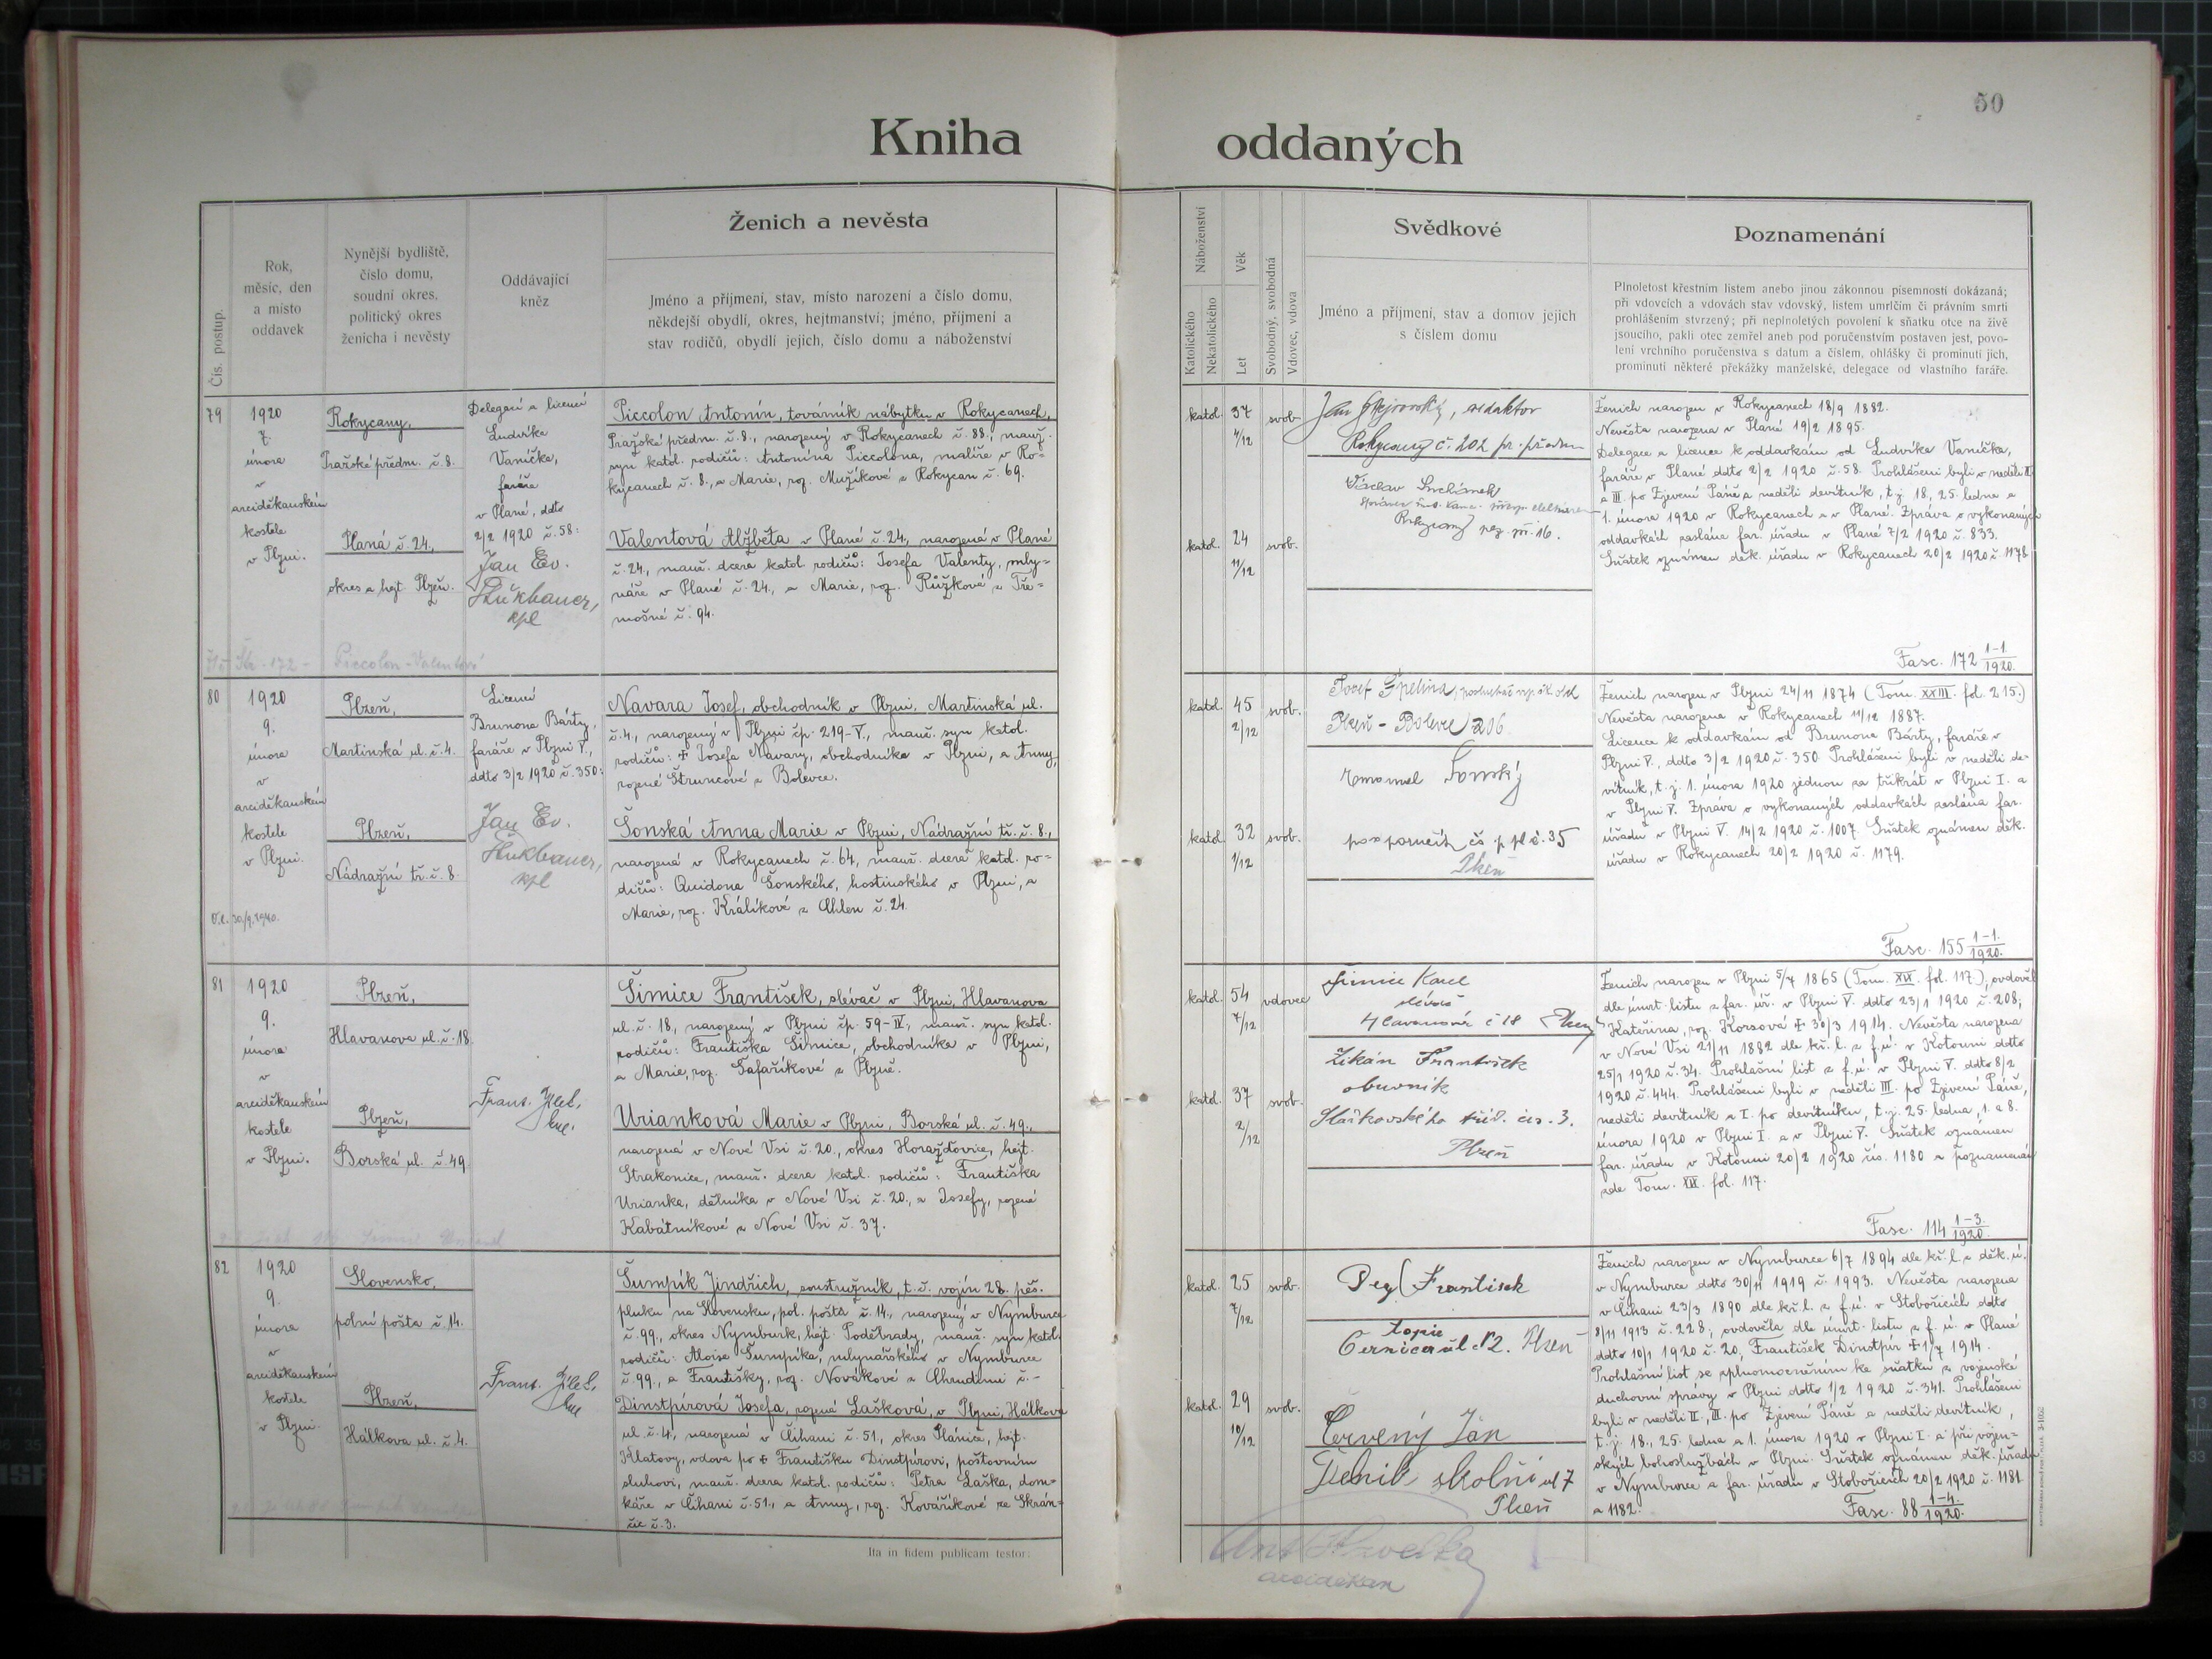 50
Kniha oddaných
Čís. postup.
Rok,
měsíc, den
a místo
oddavek
Nynější bydliště,
číslo domu,
soudní okres,
politický okres
ženicha i nevěsty
Oddávající
kněz
Ženich a nevěsta
Jméno a příjmení, stav, místo narození a číslo domu,
někdejší obydlí, okres, hejtmanství; jméno, příjmení a
stav rodičů, obydlí jejich, číslo domu a náboženství
Náboženství
Katolického
Nekatolického
Věk
Let
Svobodný, svobodná
Vdovec, vdova
Svědkové
Jméno a příjmení, stav a domov jejich
s číslem domu
Poznamenání
Plnoletost křestním listem anebo jinou zákonnou písemností dokázaná;
při vdovcích a vdovách stav vdovský, listem umrlčím či právním smrti
prohlášením stvrzený; při neplnoletých povolení k sňatku otce na živě
jsoucího, pakli otec zemřel aneb pod poručenstvím postaven jest, povo-
lení vrchního poručenstva s datum a číslem, ohlášky či prominutí jich,
prominutí některé překážky manželské, delegace od vlastního faráře.
79
1920
7.
února
v
arciděkanském
kostele
v Plzni.
Rokycany,
Pražské předm. č. 8.
Planá č. 24,
okres a hejt. Plzeň.
Delegací a licencí
Ludvíka
Vaníčka,
faráře
v Plané, ddto
2/2 1920 č. 58:
Jan Ev.
kpl
Piccolon Antonín, továrník nábytku v Rokycanech,
Pražské předm. č. 8., narozený v Rokycanech č. 88., manž.
syn katol. rodičů: Antonína Piccolona, malíře v Ro-
kycanech č. 8., a Marie, roz. Mužíkové z Rokycan č. 69.
Valentová Alžběta v Plané č. 24, narozená v Plané
č. 24, manž. dcera katol. rodičů: Josefa Valenty, mly-
náře v Plané č. 24., a Marie, roz. Růžkové z Tře-
mošné č. 94.
172 - Piccolon - Valentová
katol. 37 4/12 svob.
katol. 24 11/12 svob.
redaktor
Rokycany č. 202 pr. předm
Václav
Rokycany č. 16.
Ženich narozen v Rokycanech 18/9 1882.
Nevěsta narozena v Plané 19/2 1895.
Delegace a licence k oddavkám od Ludvíka Vaníčka,
faráře v Plané ddto 2/2 1920 č. 58. Prohlášeni byli v neděli II.
a III. po Zjevení Páně a neděli devítník, t. j. 18., 25. ledna a
1. února 1920 v Rokycanech a v Plané. Zpráva o vykonaných
oddavkách zaslána far. úřadu v Plané 7/2 1920 č. 833.
Sňatek oznámen děk. úřadu v Rokycanech 20/2 1920 č. 1178.
Fasc. 172 1-1./1920.
80
1920
9.
února
v
arciděkanském
kostele
v Plzni.
Plzeň,
Martinská ul. č. 4.
Plzeň,
Nádražní tř. č. 8.
Licencí
Brunona Bárty,
faráře v Plzni V.,
ddto 3/2 1920 č. 350:
Jan Ev.
kpl
Navara Josef, obchodník v Plzni, Martinská ul.
č. 4., narozený v Plzni čp. 219-V., manž. syn katol.
rodičů: + Josefa Navary, obchodníka v Plzni, a Anny,
rozené Štruncové z Bolevce.
Šonská Anna Marie v Plzni, Nádražní tř. č. 8.,
narozená v Rokycanech č. 64, manž. dcera katol. ro-
dičů: Quidona Šonského, hostinského v Plzni, a
Marie, roz. Králíkové z Chlen č. 24.
katol. 45 2/12 svob.
katol. 32 1/12 svob.
Josef Špelina
Plzeň - Bolevec 206
Emanuel Šonský
čs. p. pl. č. 35
Plzeň
Ženich narozen v Plzni 24/11 1874 (Tom. XXIII. fol. 215.)
Nevěsta narozena v Rokycanech 11/12 1887.
Licence k oddavkám od Brunona Bárty, faráře v
Plzni V., ddto 3/2 1920 č. 350. Prohlášeni byli v neděli de-
vítník, t. j. 1. února 1920 jednou za třikrát v Plzni I. a
v Plzni V. Zpráva o vykonaných oddavkách zaslána far.
úřadu v Plzni V. 14/2 1920 č. 1007. Sňatek oznámen děk.
úřadu v Rokycanech 20/2 1920 č. 1179.
Fasc. 155 1-1./1920.
81
1920
9.
února
v
arciděkanském
kostele
v Plzni.
Plzeň,
Hlavanova ul. č. 18.
Plzeň,
Borská ul. č. 49.
Frant.
Šimice František, slévač v Plzni, Hlavanova
ul. č. 18., narozený v Plzni čp. 59-IV., manž. syn katol.
rodičů: Františka Šimice, obchodníka v Plzni,
a Marie, roz. Šafaříkové z Plzně.
Urianková Marie v Plzni, Borská ul. č. 49.,
narozená v Nové Vsi č. 20., okres Horažďovice, hejt.
Strakonice, manž. dcera katol. rodičů: Františka
Urianka, dělníka v Nové Vsi č. 20., a Josefy, rozené
Kabátníkové z Nové Vsi č. 37.
katol. 54 7/12 vdovec
katol. 37 2/12 svob.
Šimice Karel
slévač
Hlavanova č 18 Plzeň
Žikán František
obuvník
tříd. čis. 3.
Plzeň
Ženich narozen v Plzni 5/7 1865 (Tom. XVI. fol. 117.), ovdověl
dle úmrt. listu z far. úř. v Plzni V. ddto 23/1 1920 č. 208;
Kateřina, roz. Korsová + 30/3 1914. Nevěsta narozena
v Nové Vsi 21/11 1882 dle kř. l. z f. ú. v Kotouni ddto
25/1 1920 č. 34. Prohlašní list z f. ú. v Plzni V. ddto 8/2
1920 č. 444. Prohlášeni byli v neděli III. po Zjevení Páně,
neděli devítník a I. po devítníku, t. j. 25. ledna, 1. a 8.
února 1920 v Plzni I. a v Plzni V. Sňatek oznámen
far. úřadu v Kotouni 20/2 1920 čís. 1180 a poznamenán
zde Tom. XVI. fol. 117.
Fasc. 114 1-3./1920.
82
1920
9.
února
v
arciděkanském
kostele
v Plzni.
Slovensko,
polní pošta č. 14.
Plzeň,
Hálkova ul. č. 4.
Frant.
Šumpík Jindřich, soustružník, t. č. vojín 28. pěš.
pluku na Slovensku, pol. pošta č. 14., narozený v Nymburce
č. 99., okres Nymburk, hejt. Poděbrady, manž. syn katol.
rodičů: Aloise Šumpíka, mlynářského v Nymburce
č. 99., a Františky, roz. Novákové z Chrudimi č.-
Dinstpírová Josefa, rozená Lašková, v Plzni, Hálkova
ul. č. 4., narozená v Číhani č. 51., okres Plánice, hejt.
Klatovy, vdova po + Františku Dinstpírovi, poštovním
sluhovi, manž. dcera katol. rodičů: Petra Laška, dom-
káře v Číhani č. 51., a Anny, roz. Kovaříkové ze Skrán-
čic č. 3.
katol. 25 7/12 svob.
katol. 29 10/12 svob.
František
topič
Černická ul. č 12. Plzeň
Červený Jan
školní ul 7
Plzeň
Ženich narozen v Nymburce 6/7 1894 dle kř. l. z děk. ú.
v Nymburce ddto 30/11 1919 č. 1993. Nevěsta narozena
v Číhani 23/3 1890 dle kř. l. z f. ú. v Stobořicích ddto
8/11 1913 č. 228.; ovdověla dle úmrt. listu z f. ú. v Plané
ddto 10/1 1920 č. 20, František Dinstpír + 1/7 1914.
Prohlašní list se zplnomocněním ke sňatku z vojenské
duchovní správy v Plzni ddto 1/2 1920 č. 341. Prohlášeni
byli v neděli II., III. po Zjevení Páně a neděli devítník,
t. j. 18., 25. ledna a 1. února 1920 v Plzni I. a při vojen-
ských bohoslužbách v Plzni. Sňatek oznámen děk. úřadu
v Nymburce a far. úřadu v Stobořicích 20/2 1920 č. 1181
a 1182.
Fasc. 88 1-4./1920.
Ita in fidem publicam testor:
Ant. Havelka
arciděkan